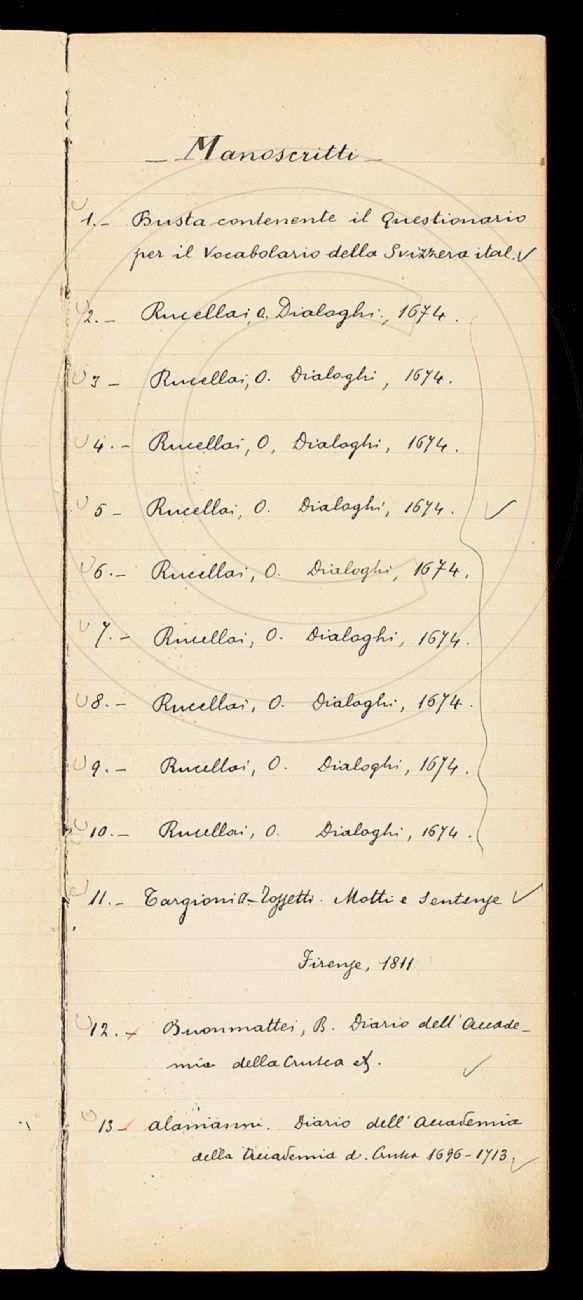 _ Manoscritti _
1.- Busta contenente il Questionario
per il Vocabolario della Svizzera ital. ✓
2.- Rucellai, O. Dialoghi, 1674.
3- Rucellai, O. Dialoghi, 1674.
4.- Rucellai, O, Dialoghi, 1674.
5- Rucellai, O. Dialoghi, 1674. ✓
6.- Rucellai, O. Dialoghi, 1674.
7.- Rucellai, O. Dialoghi, 1674.
8.- Rucellai, O. Dialoghi, 1674.
9.- Rucellai, O. Dialoghi, 1674.
10.- Rucellai, O. Dialoghi, 1674.
11.- Targioni -Tozzetti. Motti e Sentenze ✓
Firenze, 1811
12.- Buonmattei, B. Diario dell'Accade-
mia della Crusca ✓
13- Alamanni. Diario dell'Accademia
della Accademia d. Crusca 1696-1713. ✓